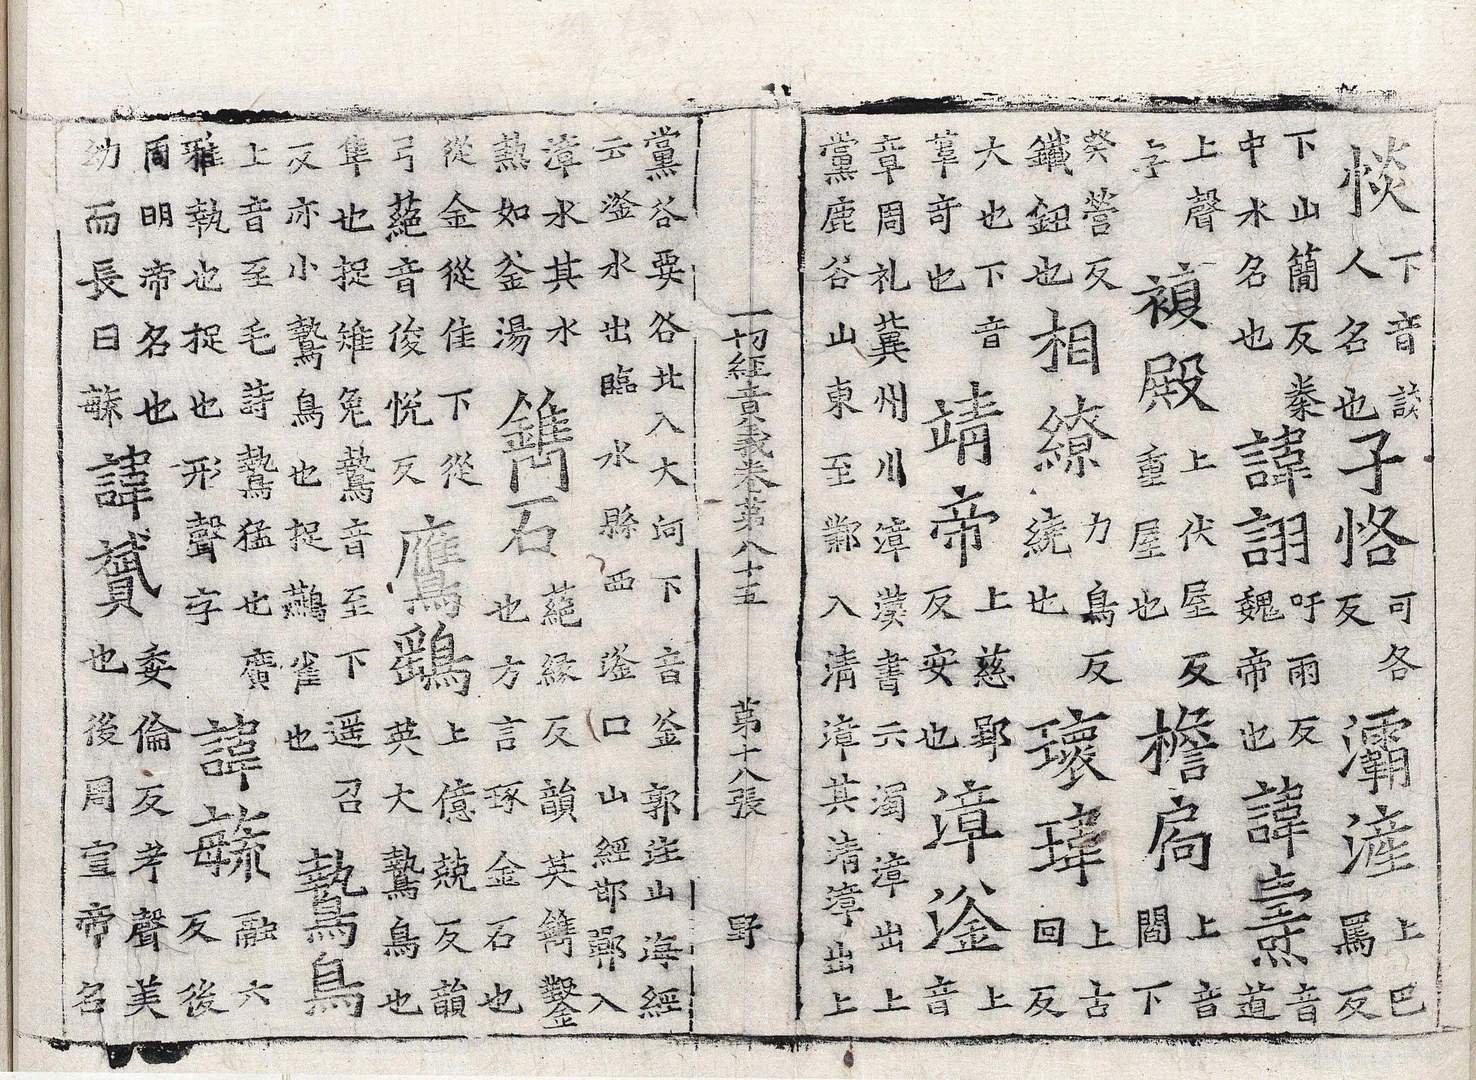 惔下音談人名也子恪可各反灞滻上巴罵反
下山簡反秦中水名也諱詡吁雨反魏帝也諱燾音道
上聲字複殿上伏屋反重屋也檐扄上音閻下
癸營反鐵鈕也相繚力鳥反繞也瓌瑋上古回反
大也下音葦奇也靖帝上慈郢反安也漳滏上音
章周礼冀州川漳漢書云濁漳出上黨鹿谷山東至鄴入清漳其清漳出上
一切經音義卷第八十五 第十八張 野
黨谷要谷北入大河下音釜郭注山海經云滏水出臨水縣西滏口山經邯鄲入
漳水其水熱如釜湯鐫石蕝緣反韻英鐫鑿也方言琢金石也
從金從隹下從弓蕝音俊悅反鷹鷂上億兢反韻英大鷙鳥也
隼也捉雉兔鷙音至下遥召反亦小鷙鳥也捉鷃雀也鷙鳥
上音至毛詩鷙猛也廣雅執也捉也形聲字諱毓融六反後
周明帝名也幼而長曰毓諱贇委倫反考聲美也後周宣帝名